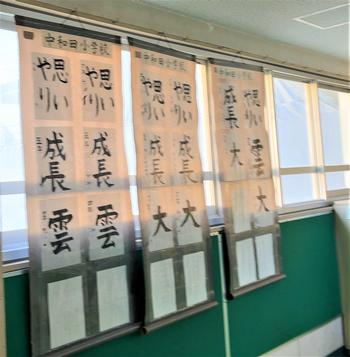 中和田小学校
思い
やり
思い
やり
成長
成長
雲
雲
中和田小学校
思い
やり
思い
やり
成長
成長
大
大
思い
やり
成長
雲
大
大